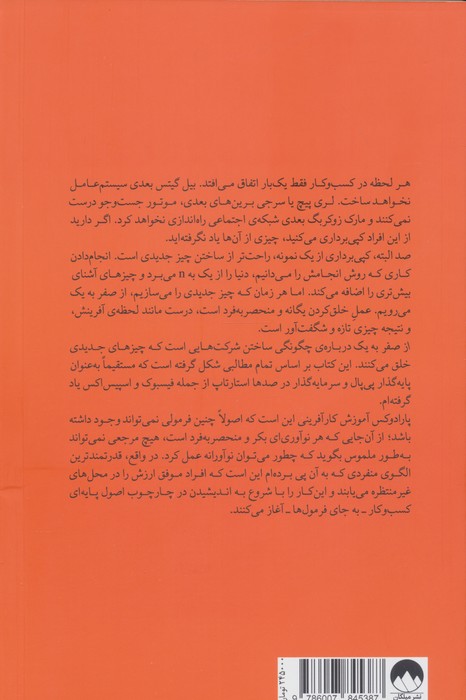 هر لحظه در کسب‌وکار فقط یک‌بار اتفاق می‌افتد. بیل گیتس بعدی سیستم‌عامل
نخواهد ساخت. لری پیج یا سرجی برین‌های بعدی، موتور جست‌وجو درست
نمی‌کنند و مارک زوکربگ بعدی شبکه‌ی اجتماعی راه‌اندازی نخواهد کرد. اگر دارید از
از این افراد کپی‌برداری می‌کنید، چیزی از آن‌ها یاد نگرفته‌اید.
صد البته، کپی‌برداری از یک نمونه، راحت‌تر از ساختن چیز جدیدی است. انجام‌دادن
کاری که روش انجامش را می‌دانیم، دنیا را از یک به n می‌برد و چیزهای آشنای
بیش‌تری را اضافه می‌کند. اما هر زمان که چیز جدیدی را می‌سازیم، از صفر به یک
می‌رویم. عمل خلق‌کردن یگانه و منحصربه‌فرد است، درست مانند لحظه‌ی آفرینش،
و نتیجه چیزی تازه و شگفت‌آور است.
از صفر به یک درباره‌ی چگونگی ساختن شرکت‌هایی است که چیزهای جدیدی
خلق می‌کنند. این کتاب بر اساس تمام مطالبی شکل گرفته است که مستقیماً به‌عنوان
پایه‌گذار پی‌پال و سرمایه‌گذار در صدها استارتاپ از جمله فیسبوک و اسپیس‌اکس یاد
گرفته‌ام.
پارادوکس آموزش کارآفرینی این است که اصولاً چنین فرمولی نمی‌تواند وجود داشته
باشد؛ از آن‌جایی که هر نوآوری‌ای بکر و منحصربه‌فرد است، هیچ مرجعی نمی‌تواند
به‌طور ملموس بگوید که چطور می‌توان نوآورانه عمل کرد. در واقع، قدرتمندترین
الگوی منفردی که به آن پی برده‌ام این است که افراد موفق ارزش را در محل‌های
غیرمنتظره می‌یابند و این‌کار را با شروع به اندیشیدن در چارچوب اصول پایه‌ای
کسب‌وکار ـ به جای فرمول‌ها ـ آغاز می‌کنند.
۲۴۵۰۰۰ تومان
9 786007 845387
نشر میلکان